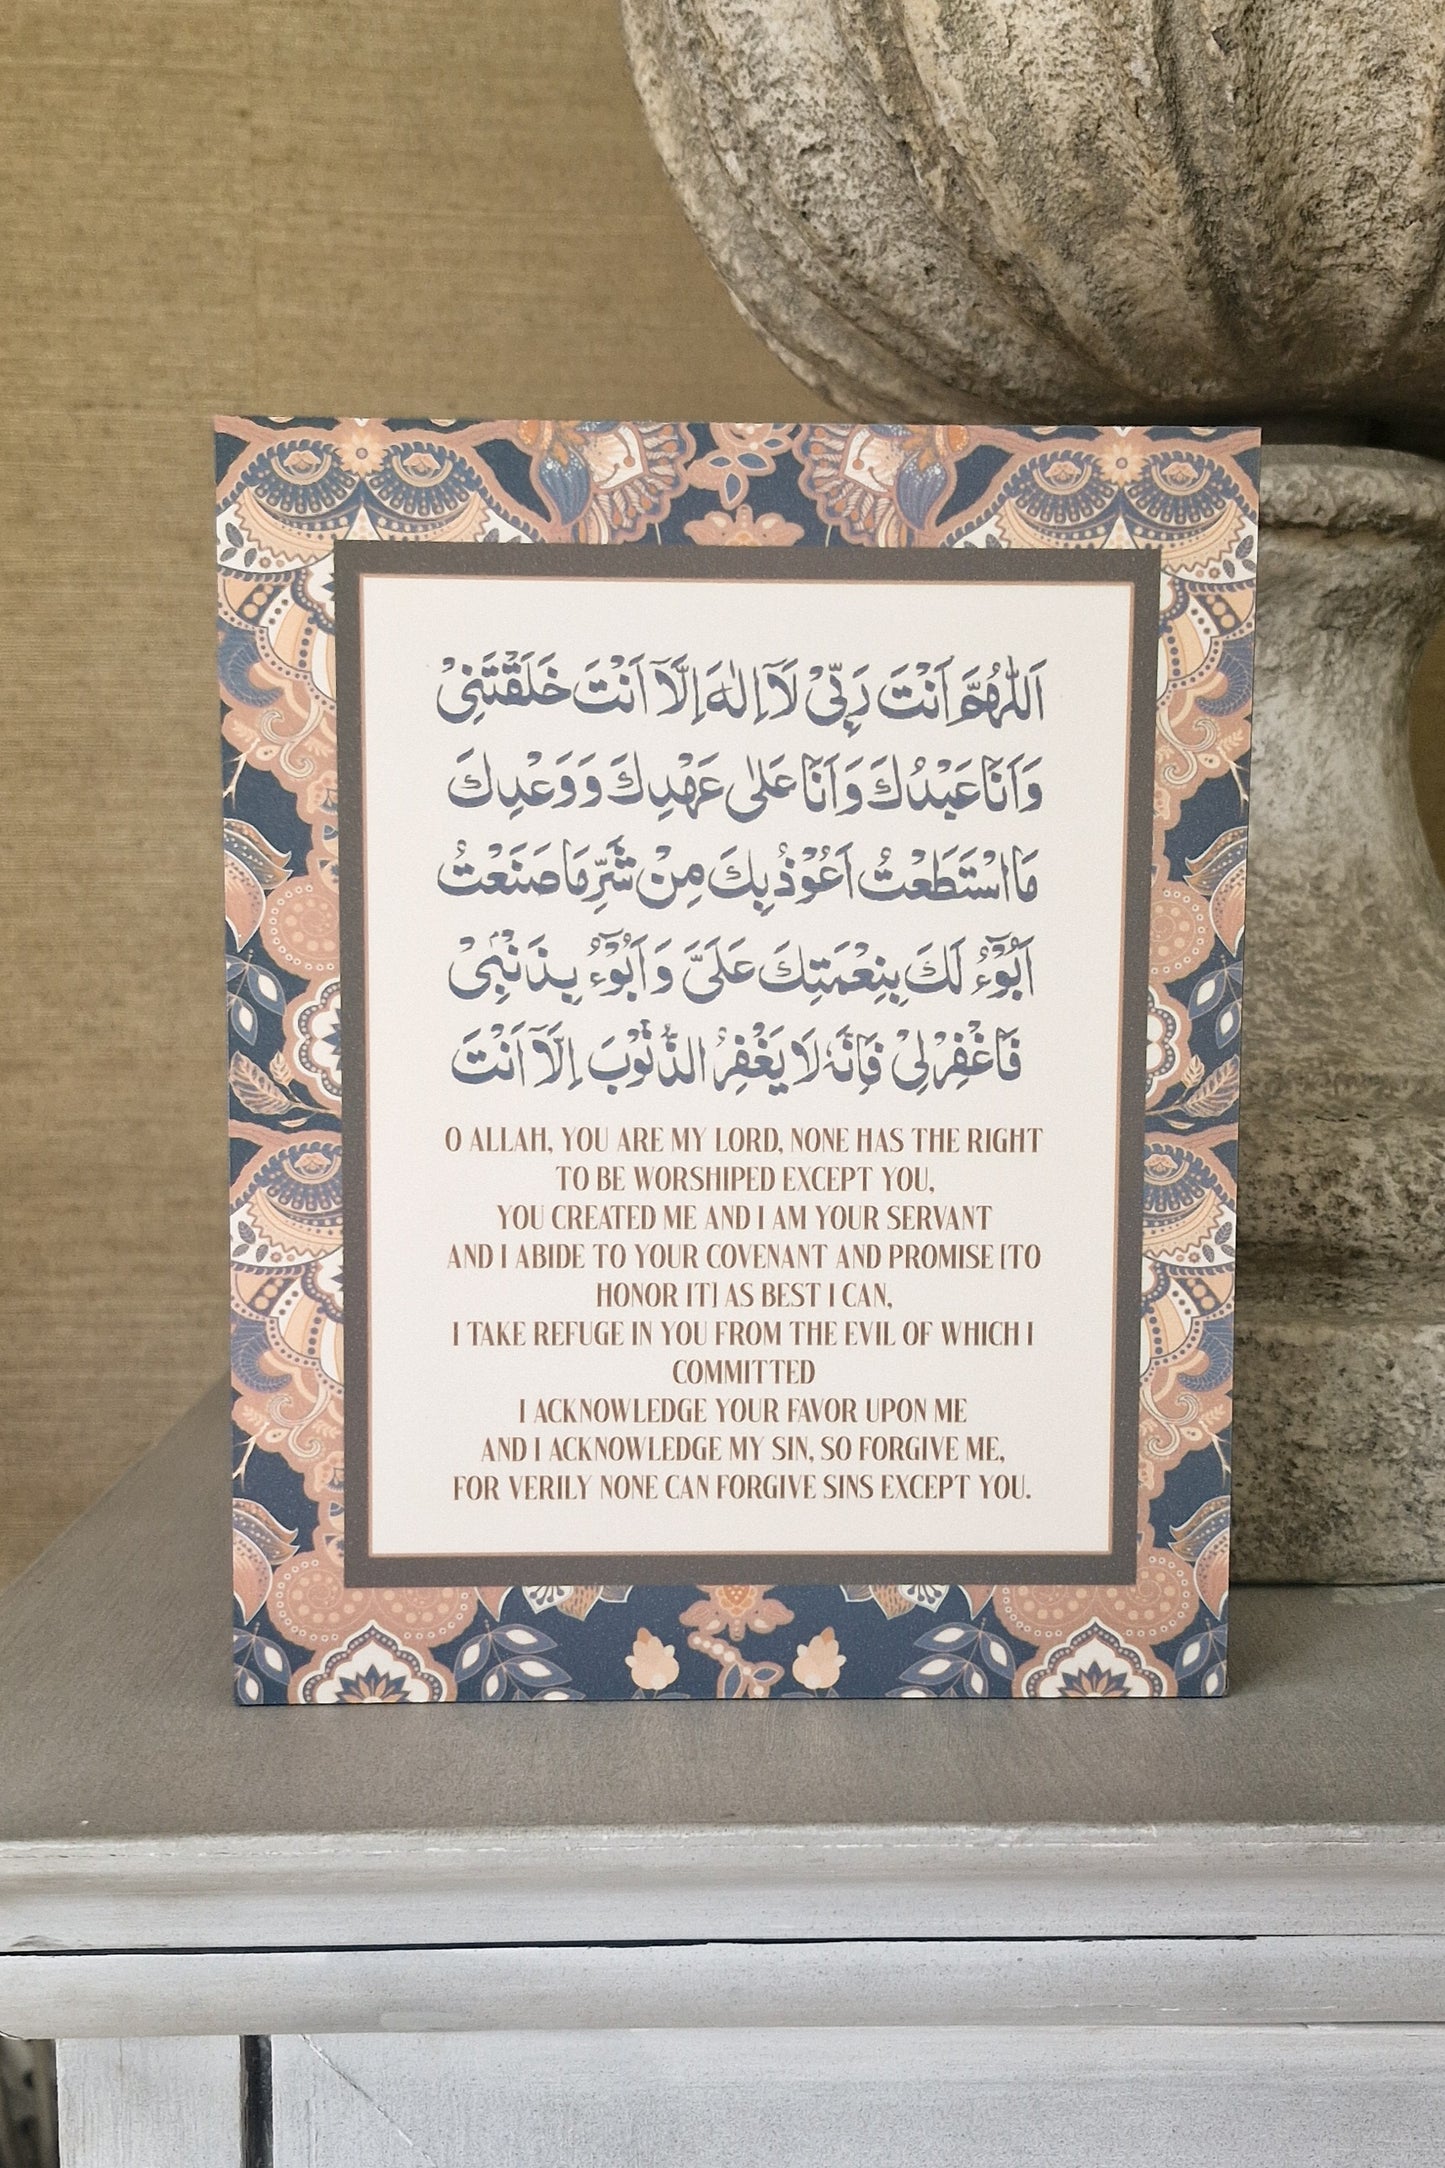 اَللّٰهُمَّ اَنْتَ رَبِّیْ لَآ اِلٰهَ اِلَّآ اَنْتَ خَلَقْتَنِیْ
وَاَنَا عَبْدُكَ وَاَنَا عَلٰی عَهْدِكَ وَوَعْدِكَ
مَا اسْتَطَعْتُ اَعُوْذُ بِكَ مِنْ شَرِّ مَا صَنَعْتُ
اَبُوْٓءُ لَكَ بِنِعْمَتِكَ عَلَیَّ وَاَبُوْٓءُ بِذَنْبِیْ
فَاغْفِرْ لِیْ فَاِنَّهٗ لَا یَغْفِرُ الذُّنُوْبَ اِلَّآ اَنْتَ
O ALLAH, YOU ARE MY LORD, NONE HAS THE RIGHT
TO BE WORSHIPED EXCEPT YOU,
YOU CREATED ME AND I AM YOUR SERVANT
AND I ABIDE TO YOUR COVENANT AND PROMISE [TO
HONOR IT] AS BEST I CAN,
I TAKE REFUGE IN YOU FROM THE EVIL OF WHICH I
COMMITTED
I ACKNOWLEDGE YOUR FAVOR UPON ME
AND I ACKNOWLEDGE MY SIN, SO FORGIVE ME,
FOR VERILY NONE CAN FORGIVE SINS EXCEPT YOU.